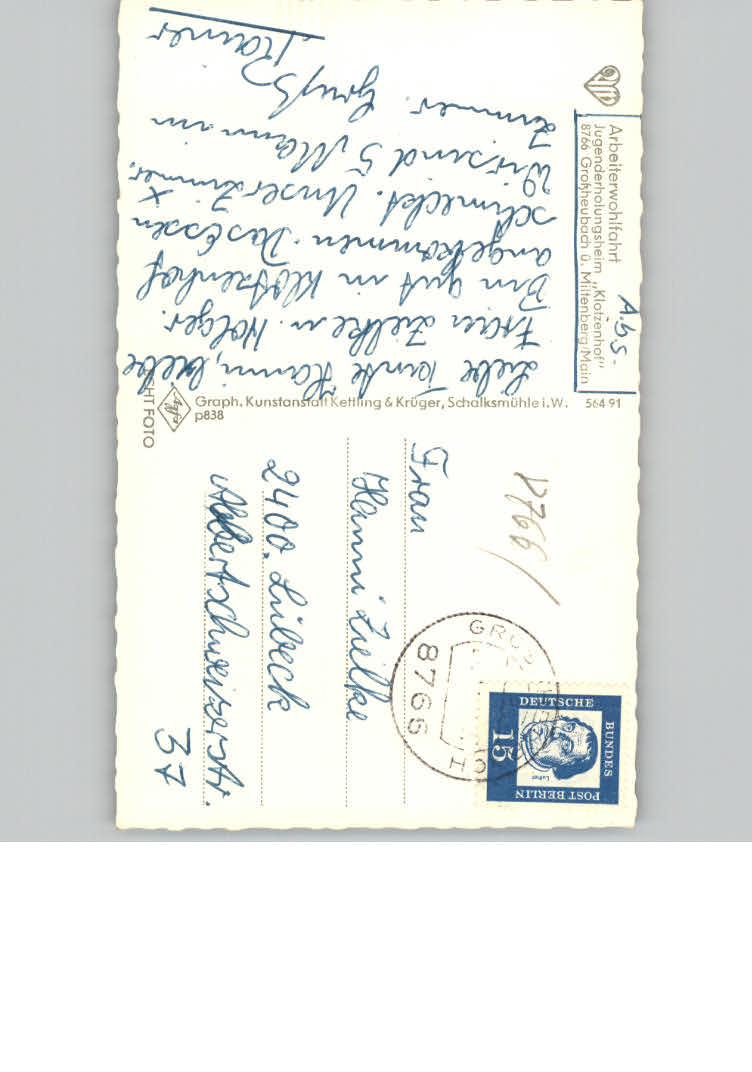 Arbeiterwohlfahrt
Jugenderholungsheim „Klotzenhof"
8766 Großheubach ü. Miltenberg/Main
Abs.
Liebe Tante Hanni, liebe
Frau Zielke u. Holger.
Bin gut in Klotzenhof
angekommen. Das Essen
schmeckt. Unser Zimmer. x
Wir sind 5 Mann im
Zimmer. Gruß
Rainer
Graph. Kunstanstalt Kettling & Krüger, Schalksmühle i. W.
564 91
p838
Agfa
ECHT FOTO
8766/
8766
DEUTSCHE
BUNDES
POST BERLIN
15
Luther
Frau
Hanni Zielke
2400 Lübeck
Albertschweizerstr.
37